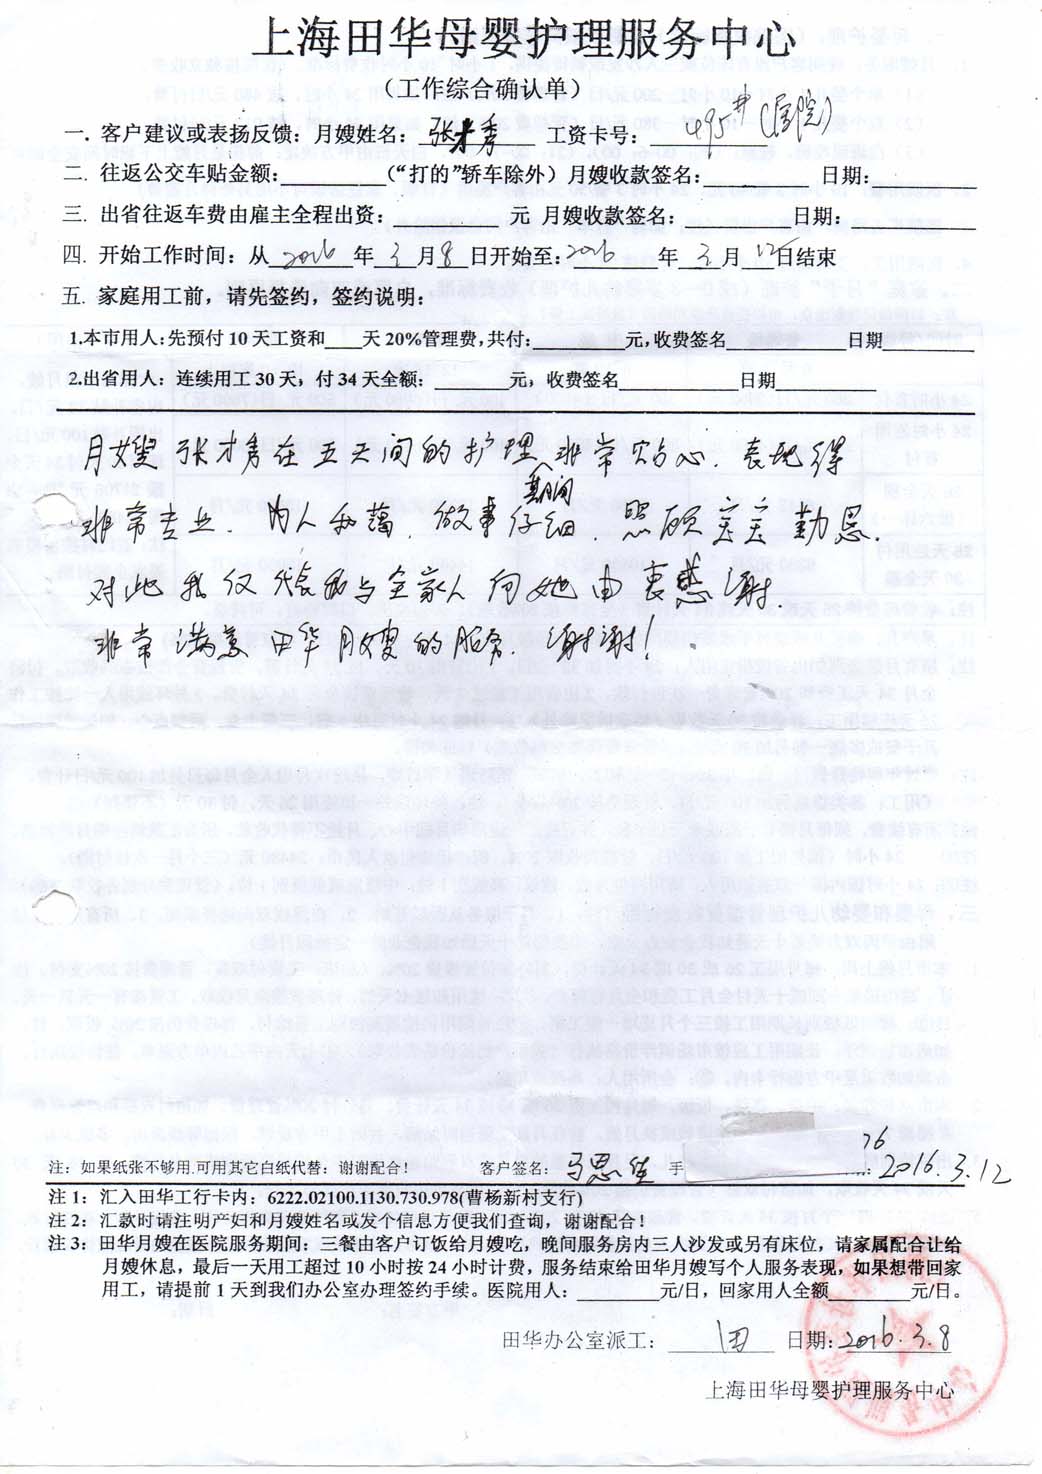 上海田华母婴护理服务中心
(工作综合确认单)
一. 客户建议或表扬反馈: 月嫂姓名: 张才秀 工资卡号: 495#(医院)
二. 往返公交车贴金额: (“打的”轿车除外) 月嫂收款签名: 日期:
三. 出省往返车费由雇主全程出资: 元 月嫂收款签名: 日期:
四. 开始工作时间: 从 2016 年 3 月 8 日开始至: 2016 年 3 月 12 日结束
五. 家庭用工前, 请先签约, 签约说明:
1.本市用人: 先预付 10 天工资和 天 20%管理费, 共付: 元, 收费签名 日期
2.出省用人: 连续用工 30 天, 付 34 天全额: 元, 收费签名 日期
月嫂张才秀在五天间的护理期间非常贴心. 表现得
非常专业. 为人和蔼. 做事仔细. 照顾宝宝勤恳.
对此我仅代表我与全家人向她由衷感谢.
非常满意田华月嫂的服务. 谢谢!
注: 如果纸张不够用.可用其它白纸代替: 谢谢配合! 客户签名: 马思生 手 76 : 2016.3.12
注 1: 汇入田华工行卡内: 6222.02100.1130.730.978(曹杨新村支行)
注 2: 汇款时请注明产妇和月嫂姓名或发个信息方便我们查询, 谢谢配合!
注 3: 田华月嫂在医院服务期间: 三餐由客户订饭给月嫂吃, 晚间服务房内三人沙发或另有床位, 请家属配合让给
月嫂休息, 最后一天用工超过 10 小时按 24 小时计费, 服务结束给田华月嫂写个人服务表现, 如果想带回家
用工, 请提前 1 天到我们办公室办理签约手续。医院用人: 元/日, 回家用人全额 元/日。
田华办公室派工: 田 日期: 2016.3.8
上海田华母婴护理服务中心